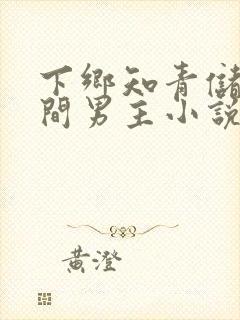 下鄉知青儲
間男主小説
黃澄